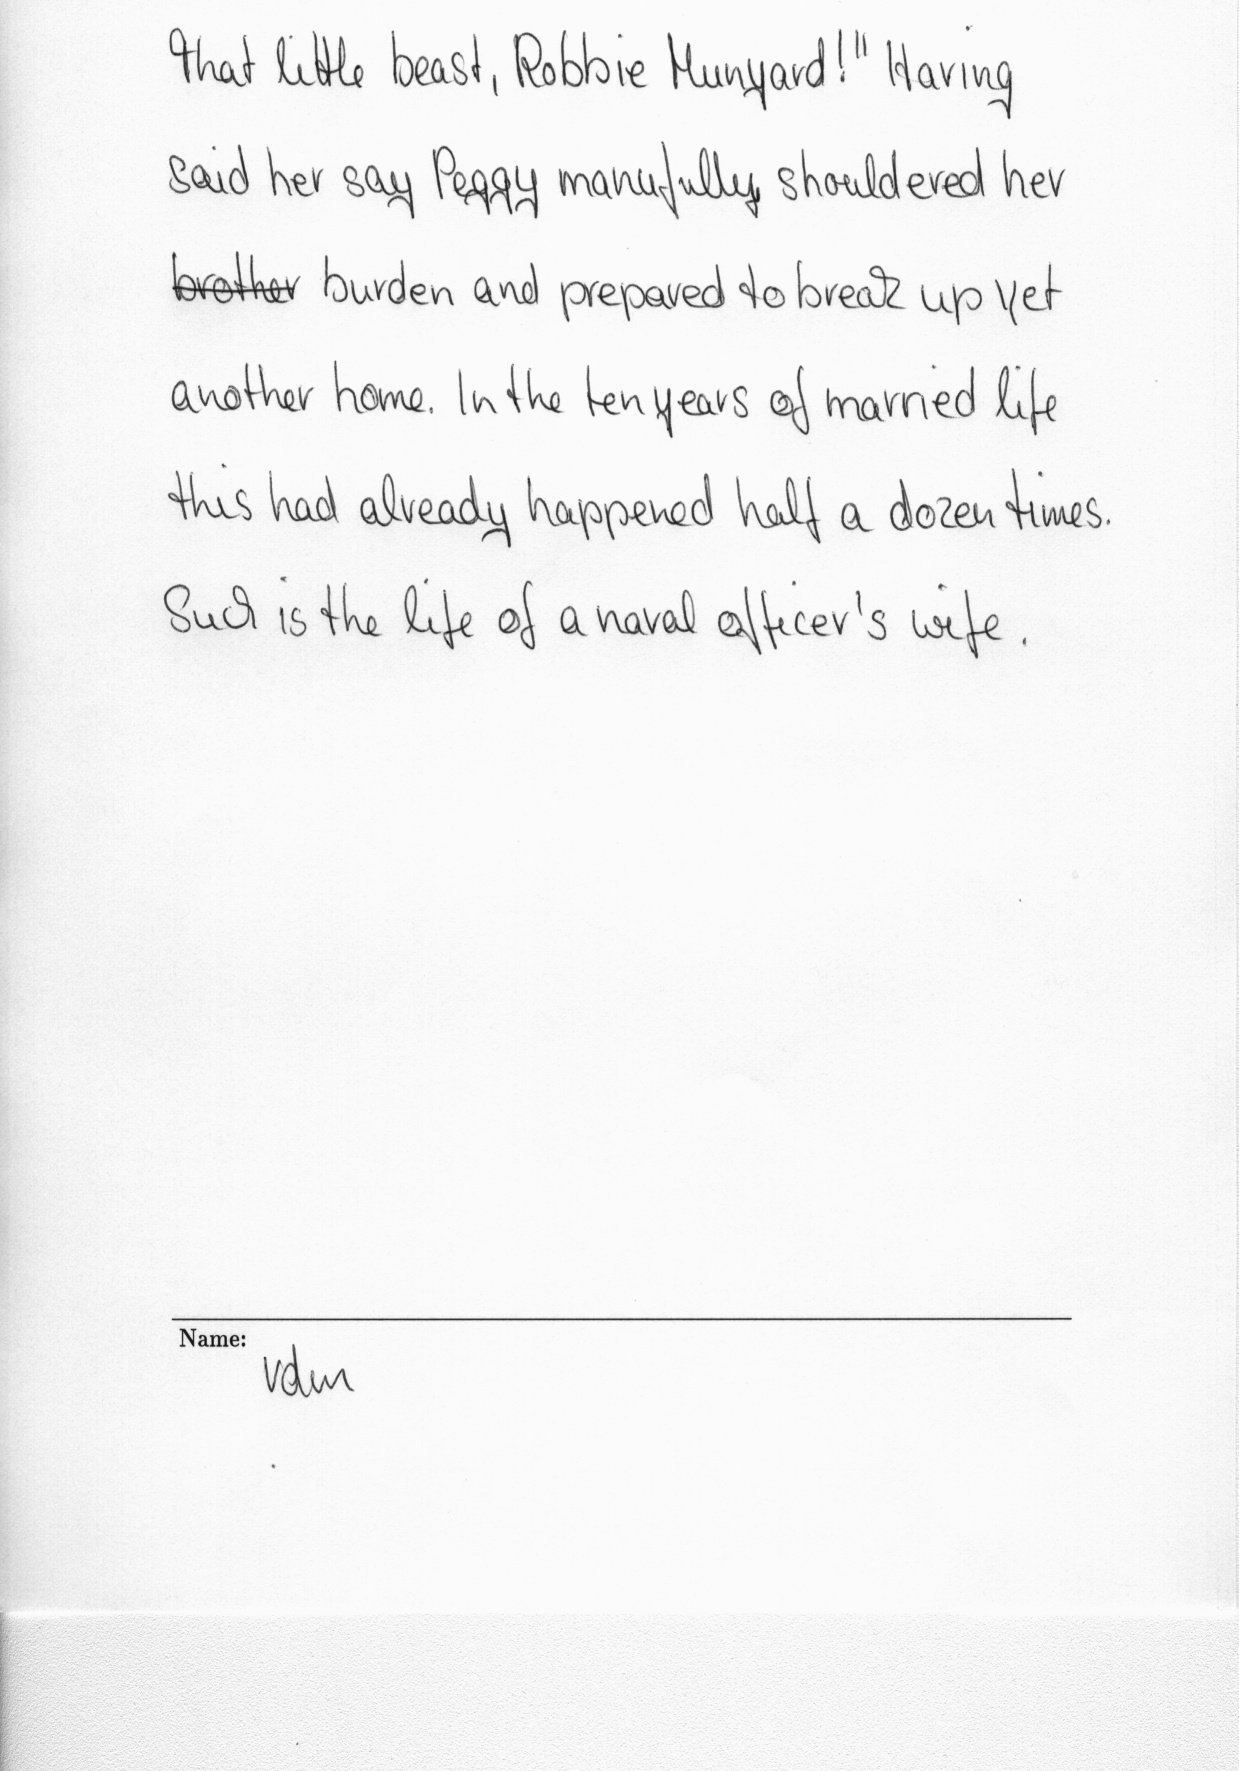 that little beast, Robbie Munyard!" Having
said her say Peggy manufully shouldered her
brother burden and prepared to break up yet
another home. In the ten years of married life
this had already happened half a dozen times.
Such is the life of a naval officer's wife.
Name: